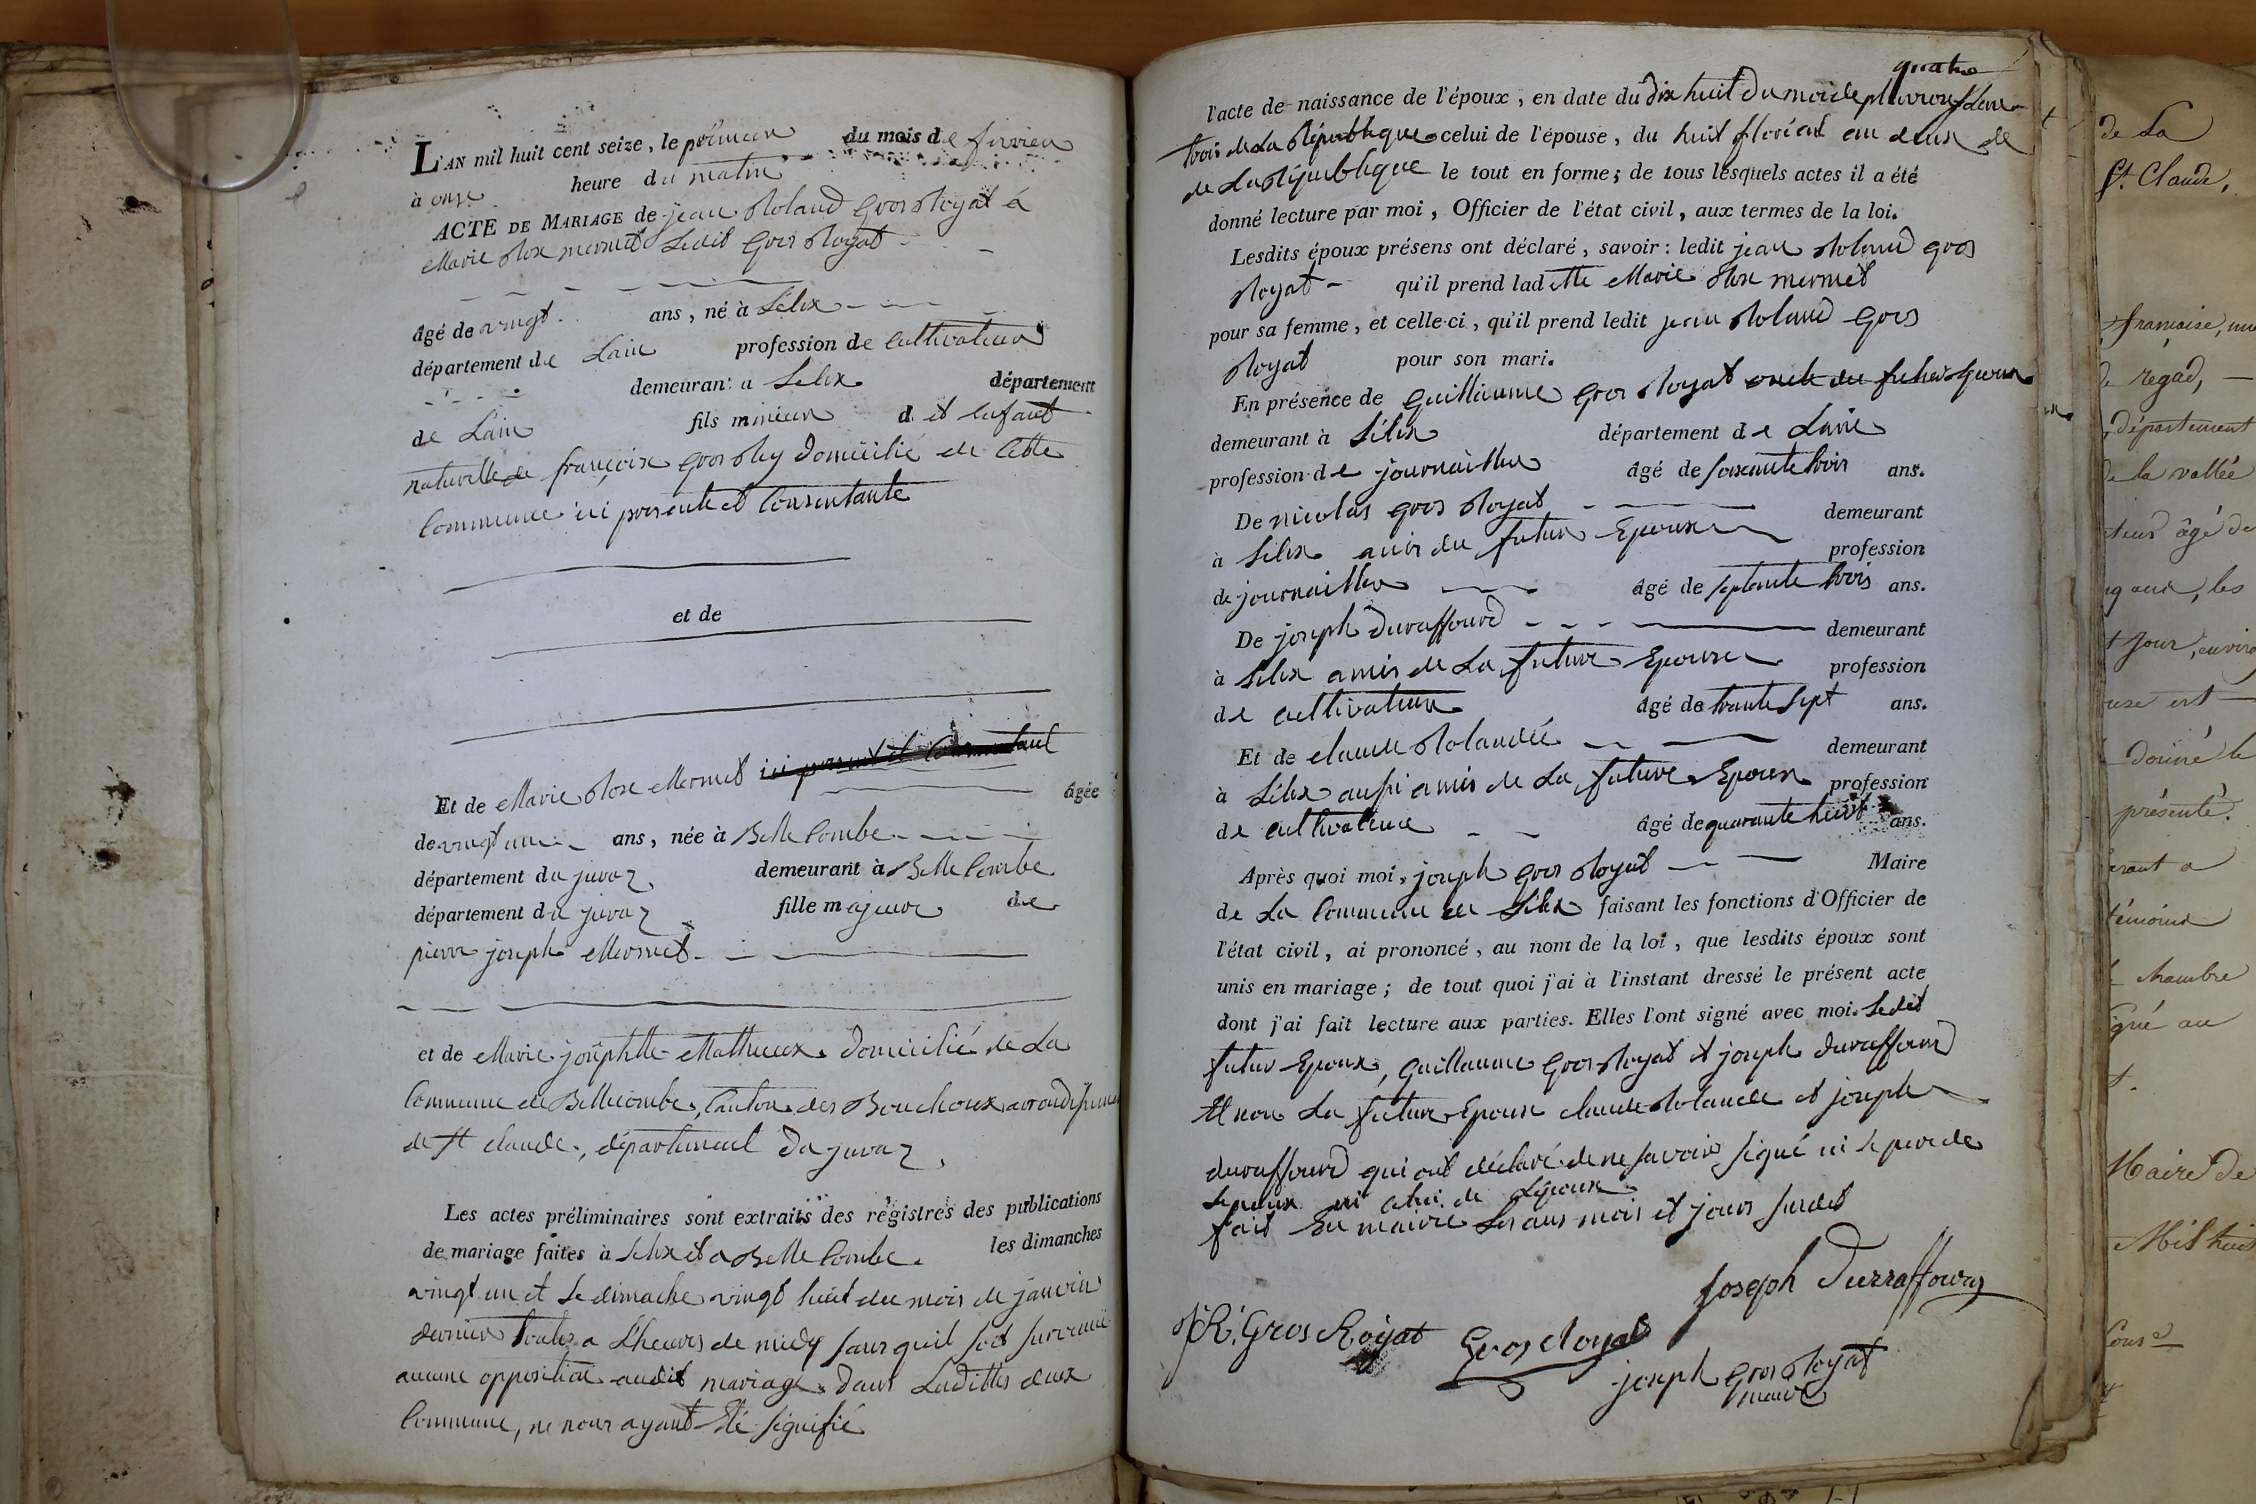 L'AN mil huit cent seize, le premier du mois de fevrier
à onze heure du matin
ACTE DE MARIAGE de jean Roland gros Royat á
Marie Rose mermet Ledit gros Royat
âgé de vingt ans, né à Lelex
département de Lain profession de cultivateur
demeurant a Lelex département
de Lain fils mineur d et enfant
naturelle de françoise gros Rey domicilié de cette
commune ici presente et consentante
et de
Et de Marie Rose Mermet ici present et consentant
âgée
de vingt un ans, née à Belle Combe
département du jura demeurant à Belle Combe
département du jura fille majeure de
pierre joseph Mermet
et de Marie josephtte Mathieux domicilié de La
Commune de Bellecombe, Canton des Bouchoux arrondissement
de St claude, département du jura
Les actes préliminaires sont extraits des registres des publications
de mariage faites à Lelex et a Belle Combe les dimanches
vingt un et Le dimache vingt huit du mois de janvier
dernier toutes a L'heures de midy sans quil soit survenue
aucune opposition audit mariage dans Ladittes deux
Commune, ne nous ayant Eté signifié
quatre
l'acte de naissance de l'époux, en date du dix huit du mois de
trois de La République celui de l'épouse, du huit floréal an deux de
de La République le tout en forme; de tous lesquels actes il a été
donné lecture par moi, Officier de l'état civil, aux termes de la loi.
Lesdits époux présens ont déclaré, savoir: ledit jean Roland gros
Royat qu'il prend laditte Marie Rose mermet
pour sa femme, et celle-ci, qu'il prend ledit jean Roland gros
Royat pour son mari.
En présence de Guillaume gros Royat oncle du futur
demeurant à Lélex département de Lain
profession de journailler âgé de soixante trois ans.
De nicolas gros Royat demeurant
à Lelex amis du futur Epoux profession
de journailler âgé de septante trois ans.
De joseph Duraffourd demeurant
à Lelex amis de La future Epouse profession
de cultivateur âgé de trante sept ans.
Et de claude Rolandée demeurant
à Lélex aussi amis de La future Epouse profession
de cultivateur âgé de quarante huit ans.
Après quoi moi, joseph gros Royat Maire
de La Commune de Lélex faisant les fonctions d'Officier de
l'état civil, ai prononcé, au nom de la loi, que lesdits époux sont
unis en mariage; de tout quoi j'ai à l'instant dressé le présent acte
dont j'ai fait lecture aux parties. Elles l'ont signé avec moi. Ledit
futur Epoux, Guillaume gros Royat et joseph duraffourd
Et non La future Epouse claude Rolande et joseph
duraffourd qui ont déclaré de ne savoir signé ni le pere de
Lepoux ni celui de Lépouse
fait En mairie Les ans mois et jours susdit
Joseph Durraffourg
J. R. Gros Royat Gros Royat
joseph gros Royat
maire
de La
St. Claude,
française,
de
département
de la vallée
âgé de
les
jour, environ
est
donné le
présenté.
a
témoins
chambre
signé au
Maire de
Mil huit